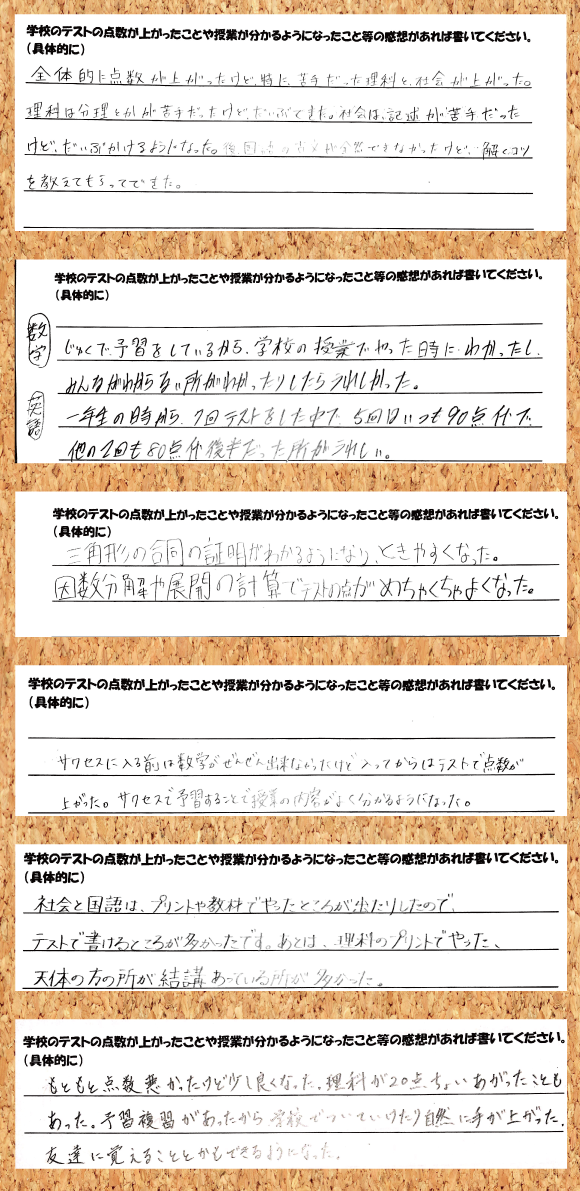 学校のテストの点数が上がったことや授業が分かるようになったこと等の感想があれば書いてください。
(具体的に)
全体的に点数が上がったけど、特に、苦手だった理科と、社会が上がった。
理科は分理とかが苦手だったけど、だいぶできた。社会は、記述が苦手だった
けど、だいぶかけるようになった。後、国語の古文が全然できなかったけど、解くコツ
を教えてもらってできた。
学校のテストの点数が上がったことや授業が分かるようになったこと等の感想があれば書いてください。
(具体的に)
数学
じゅくで予習をしているから、学校の授業でやった時に、わかったし、
みんながわからない所がわかったりしたらうれしかった。
英語
一年生の時から、7回テストをした中で、5回はいつも90点代で
他の2回も80点代後半だった所がうれしい。
学校のテストの点数が上がったことや授業が分かるようになったこと等の感想があれば書いてください。
(具体的に)
三角形の合同の証明がわかるようになり、ときやすくなった。
因数分解や展開の計算でテストの点がめちゃくちゃよくなった。
学校のテストの点数が上がったことや授業が分かるようになったこと等の感想があれば書いてください。
(具体的に)
サクセスに入る前は数学がぜんぜん出来なかったけど入ってからはテストで点数が
上がった。サクセスで予習することで授業の内容がよく分かるようになった。
学校のテストの点数が上がったことや授業が分かるようになったこと等の感想があれば書いてください。
(具体的に)
社会と国語は、プリントや教材でやったところが出たりしたので、
テストで書けるところが多かったです。あとは、理科のプリントでやった、
天体の方の所が結講あっている所が多かった。
学校のテストの点数が上がったことや授業が分かるようになったこと等の感想があれば書いてください。
(具体的に)
もともと点数悪かったけど少し良くなった。理科が20点ちょいあがったことも
あった。予習複習があったから学校でついていけたり自然に手が上がった。
友達に覚えることとかもできるようになった。